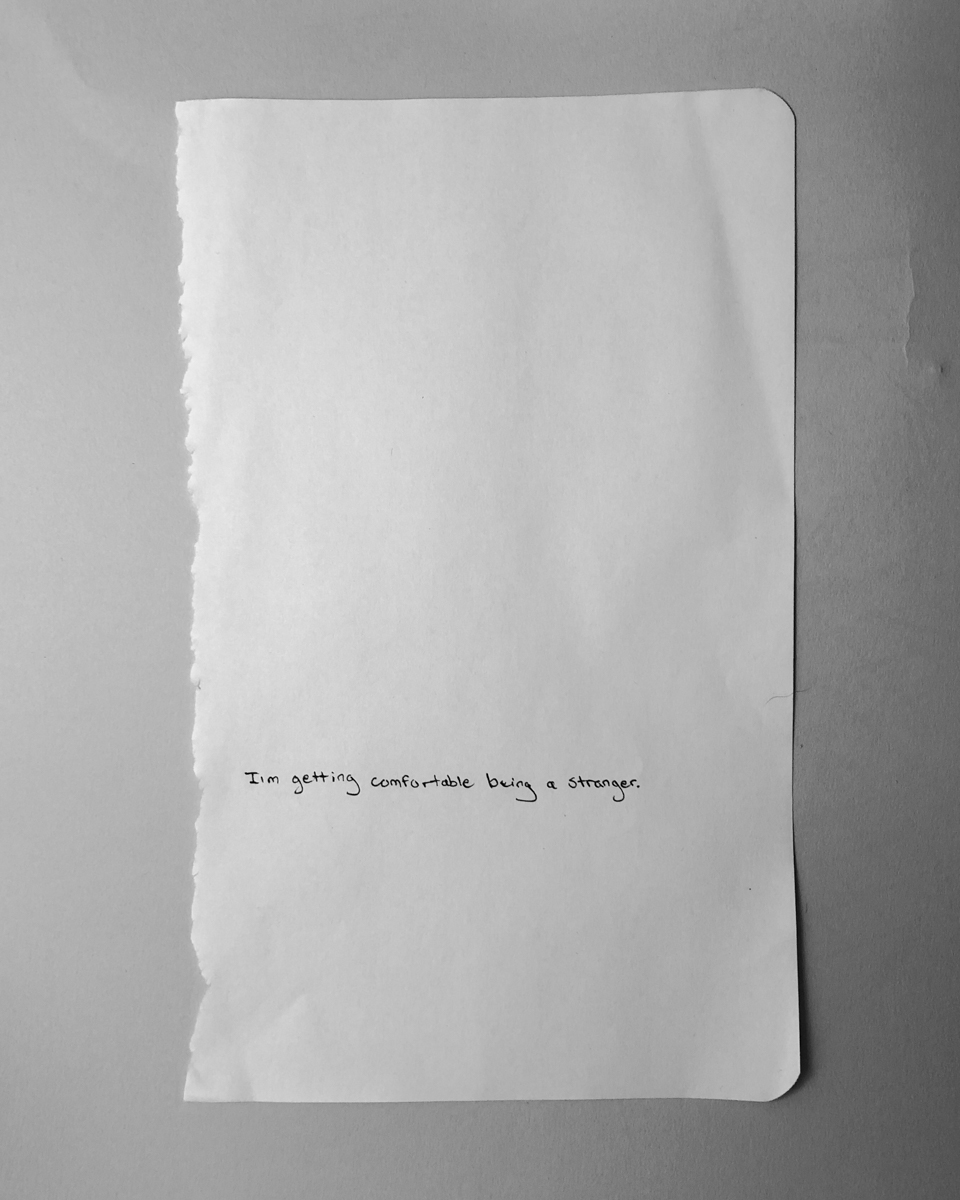 I'm getting comfortable being a stranger.